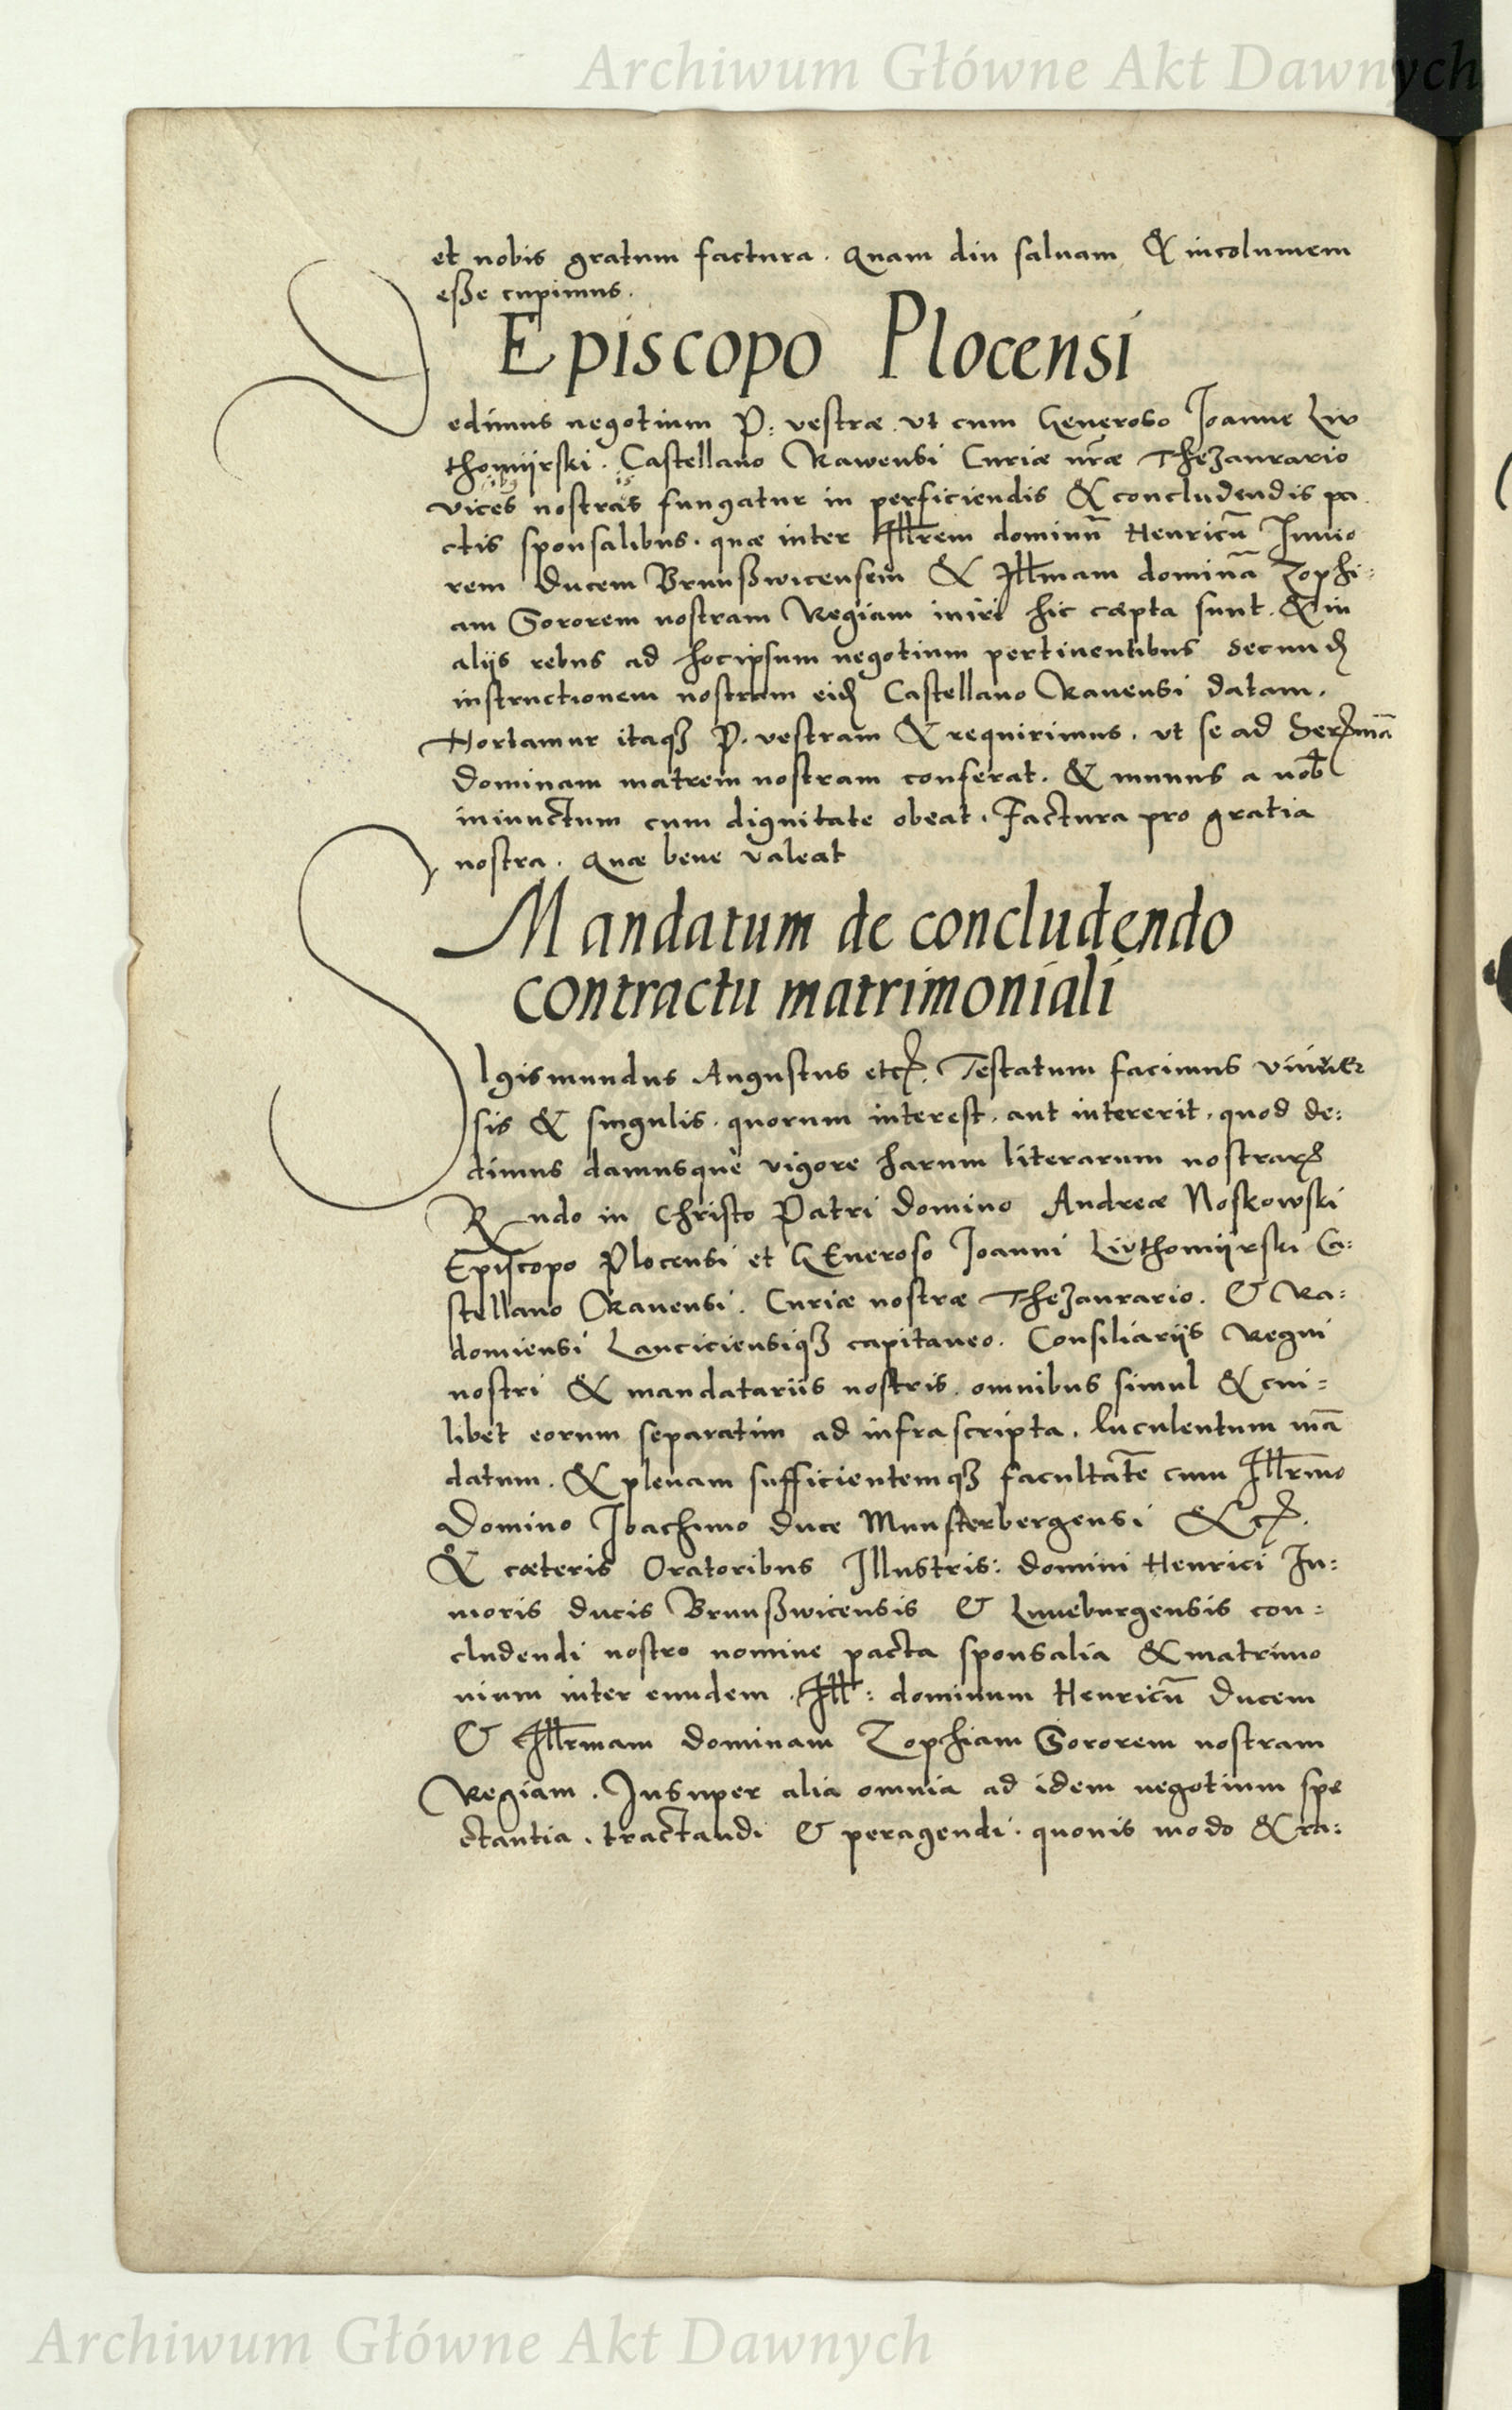 Archiwum Główne Akt Dawnych
et nobis gratum factura. Quam diu saluam & incolumem
eße cupimus.
Episcopo Plocensi
Dedimus negotium P: vestræ vt cum Generoso Joanne Liv
thomijrski. Castellano Rawensi Curiæ nr̃æ Thezaurario
vices nostras fungatur in perficiendis & concludendis pa
ctis sponsalibus. quæ inter Illrem dominũ Henricũ Junio
rem Ducem Brunßwicensem & Illmam dominã Zophi:
am Sororem nostram Regiam iniri hic cæpta sunt. & in
alijs rebus ad hocipsum negotium pertinentibus secund
instructionem nostram eid Castellano Rauensi datam.
Hortamur itaqз P. vestram & requirimus. vt se ad Sermã
dominam matrem nostram conferat. & munus a nob
iniunctum cum dignitate obeat. Factura pro gratia
nostra. Quæ bene valeat
Mandatum de concludendo
contractu matrimoniali
SIgismundus Augustus etc. Testatum facimus vniuer
sis & singulis. quorum interest. aut intererit. quod de:
dimus damusquè vigore harum literarum nostrar
Rndo in Christo Patri domino Andreæ Noskowski
Episcopo Plocensi et GEneroso Joanni Livthomijrski Ca:
stellano Rauensi. Curiæ nostræ Thezaurario. & Ra:
domiensi Lanciciensiqз capitaneo. Consiliarijs Regni
nostri & mandatariis nostris. omnibus simul & cui=
libet eorum separatim ad infrascripta. luculentum mã
datum. & plenam sufficientemqз facultatẽ cum Illrmo
Domino Joachimo duce Munsterbergensi &c.
& cæteris Oratoribus Illustris: domini Henrici Ju:
nioris ducis Brunßwicensis & Luneburgensis con=
cludendi nostro nomine pacta sponsalia & matrimo
nium inter eundem Ill: dominum Henricũ Ducem
& Illrmam dominam Zophiam Sororem nostram
Regiam. Insuper alia omnia ad idem negotium spe
ctantia. tractandi & peragendi. quouis modo & ra:
Archiwum Główne Akt Dawnych